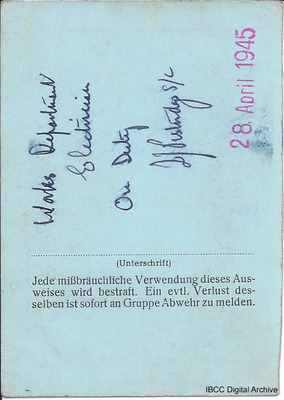 Works Department
Electrician
On Duty
S/L
28. April 1945
(Unterschrift)
Jede mißbräuchliche Verwendung dieses Aus-
weises wird bestraft. Ein evtl. Verlust des-
selben ist sofort an Gruppe Abwehr zu melden.
IBCC Digital Archive